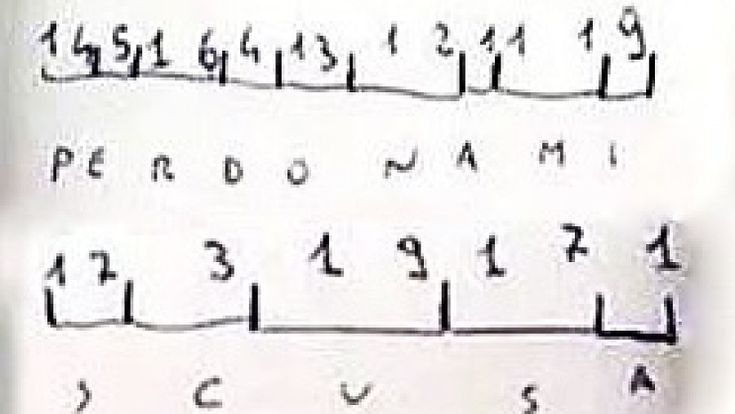 14 5 1 6 4 13 1 2 1 1 1 9
P E R D O N A M I
1 7 3 1 9 1 7 1
S C U S A